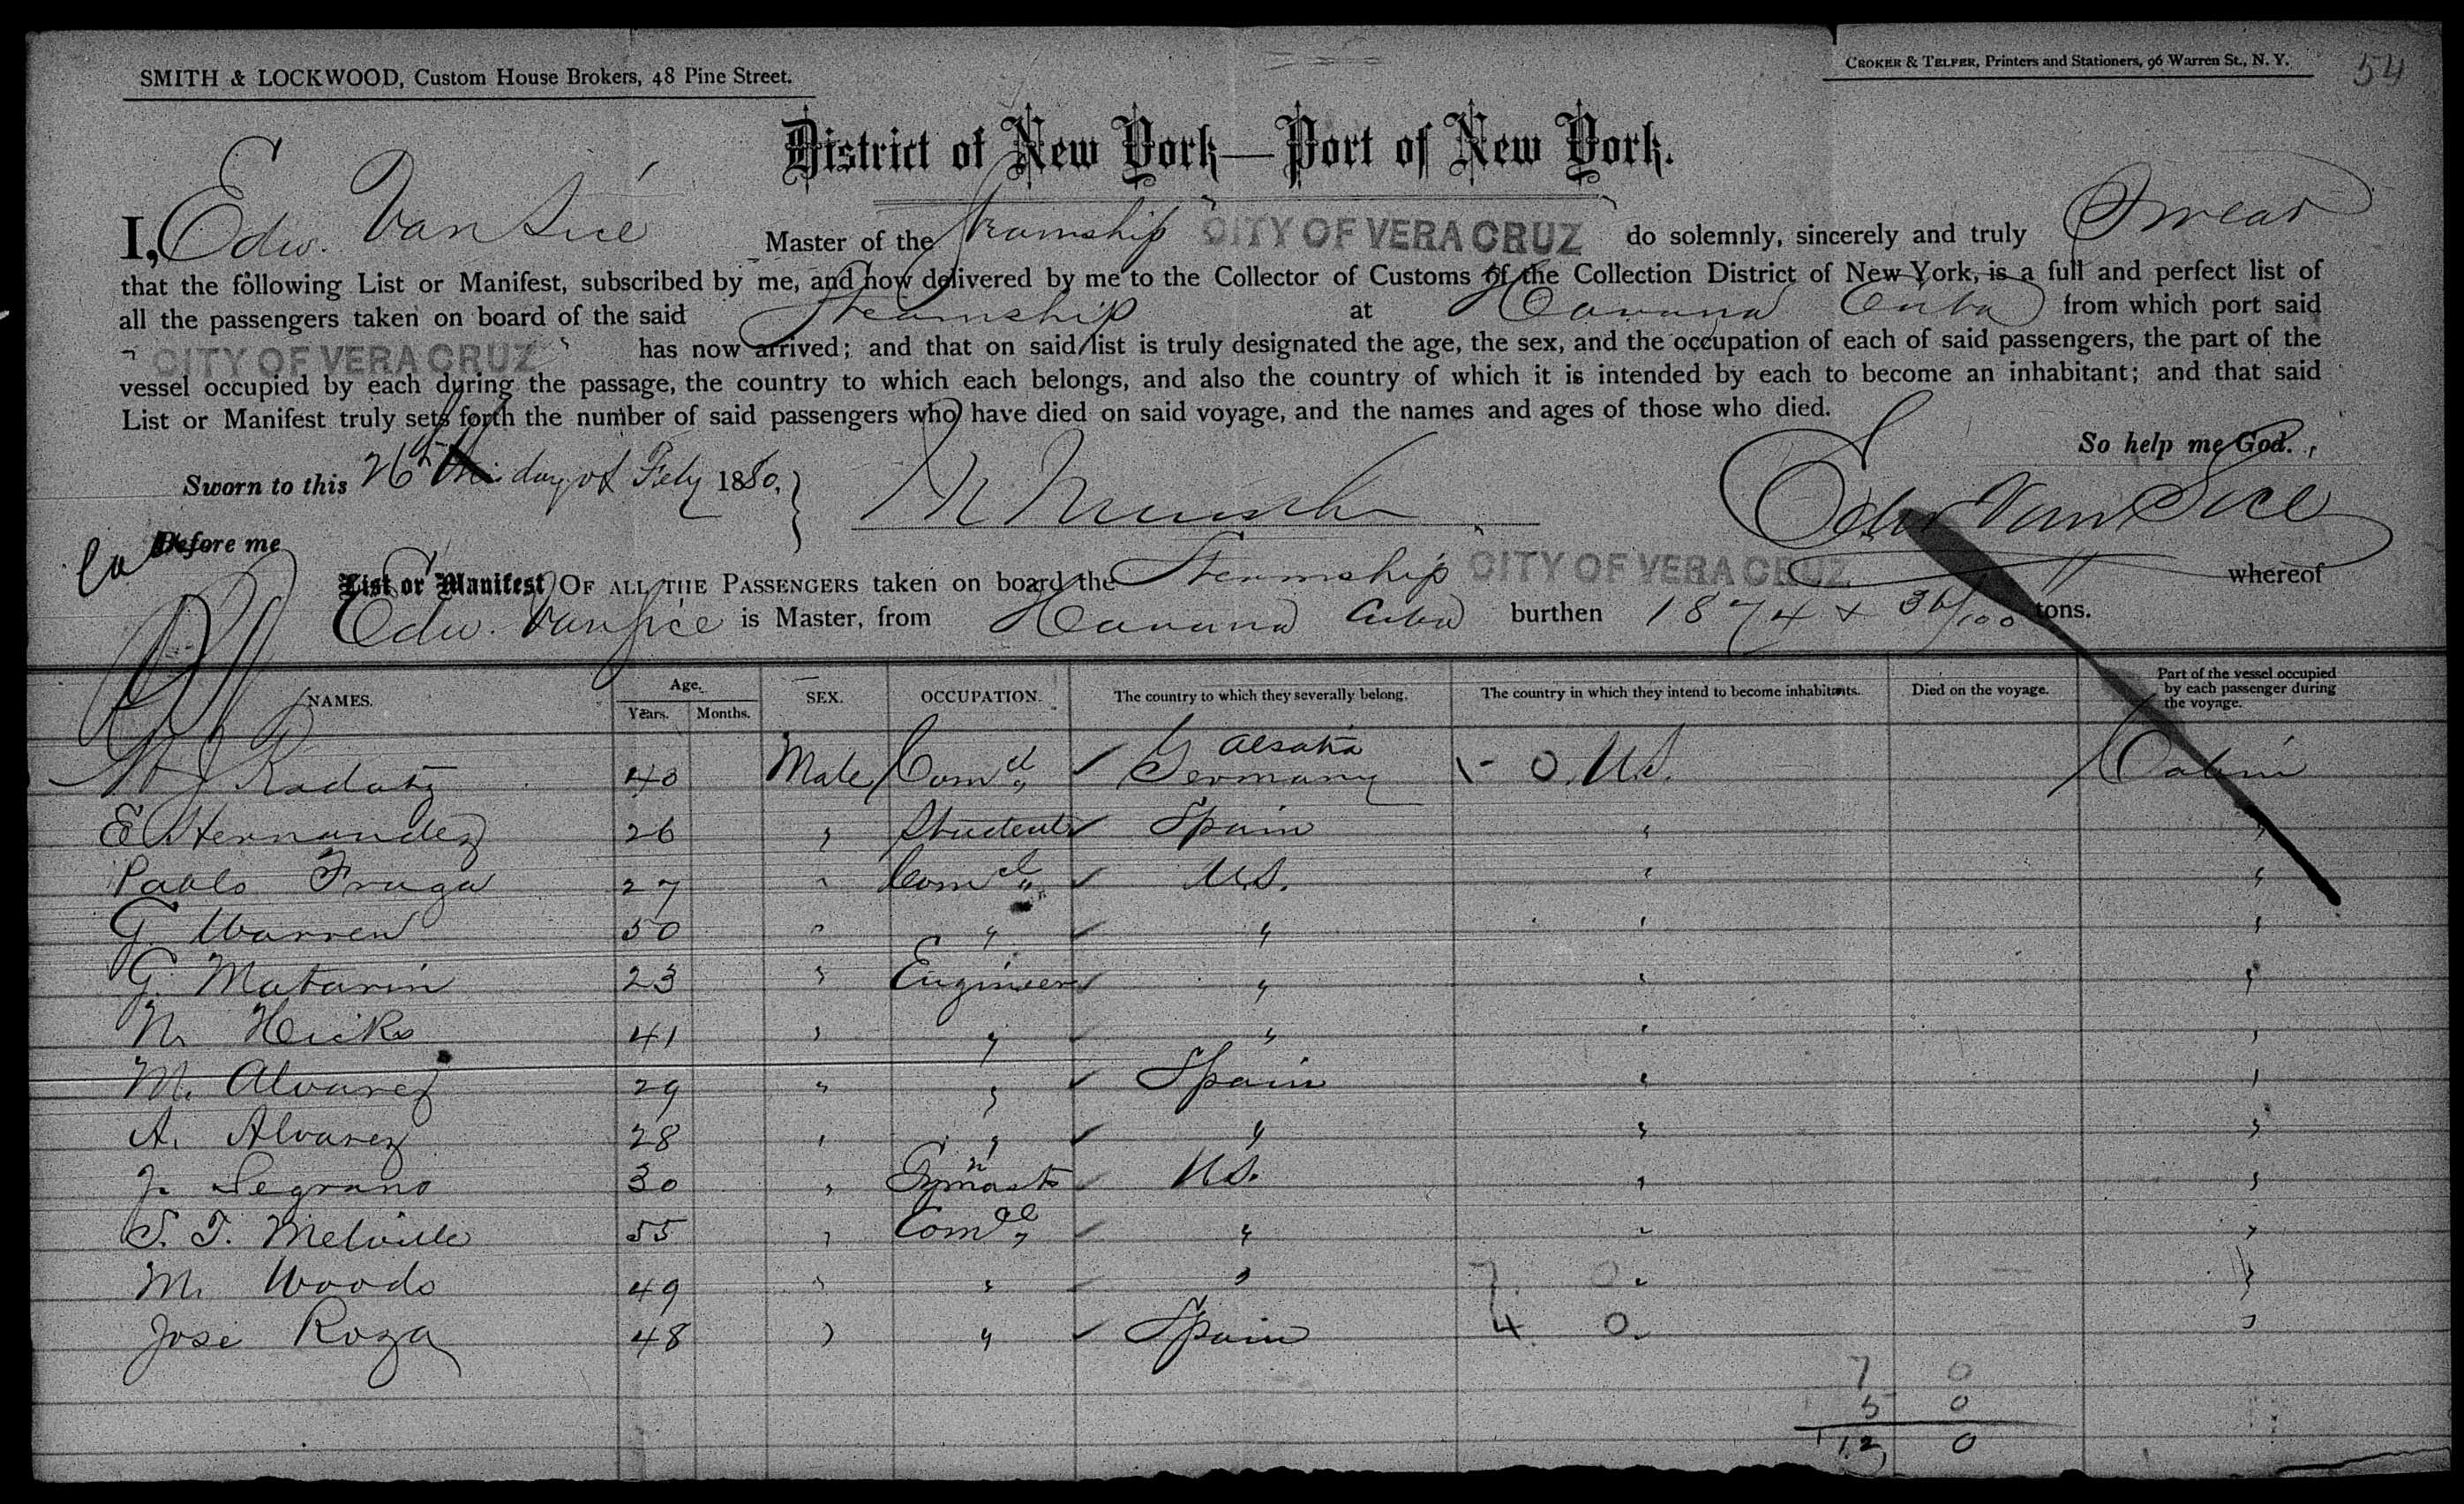 SMITH & LOCKWOOD, Custom House Brokers, 48 Pine Street.
CROKER & TELFER, Printers and Stationers, 96 Warren St., N. Y. 54
District of New York—Port of New York.
I, Edw. Van Sice Master of the Steamship "CITY OF VERA CRUZ" do solemnly, sincerely and truly Swear
that the following List or Manifest, subscribed by me, and now delivered by me to the Collector of Customs of the Collection District of New York, is a full and perfect list of
all the passengers taken on board of the said Steamship at Havana Cuba from which port said
"CITY OF VERA CRUZ" has now arrived; and that on said list is truly designated the age, the sex, and the occupation of each of said passengers, the part of the
vessel occupied by each during the passage, the country to which each belongs, and also the country of which it is intended by each to become an inhabitant; and that said
List or Manifest truly sets forth the number of said passengers who have died on said voyage, and the names and ages of those who died.
So help me God.
Sworn to this 26th day of Feby 1880. Edw Van Sice
Before me
List or Manifest OF ALL THE PASSENGERS taken on board the Steamship CITY OF VERA CRUZ whereof
Edw. Van Sice is Master, from Havana Cuba burthen 1874 + 36/100 tons.
NAMES. Age. Years. Months. SEX. OCCUPATION. The country to which they severally belong. The country in which they intend to become inhabitants. Died on the voyage. Part of the vessel occupied by each passenger during the voyage.
Radatz 40 Male Comcl ✓ Alsatia Germany 1 - 0 U.S. Cabin
E Hernandez 26 " Student ✓ Spain " "
Pablo Fraga 27 " Comcl ✓ U.S. " "
G. Warren 50 " " ✓ " " "
G. Matarin 23 " Engineer ✓ " " "
N. Hicks 41 " " ✓ " " "
M. Alvarez 29 " " ✓ Spain " "
A. Alvarez 28 " " ✓ " " "
J. Segrano 30 " Gymnast ✓ U.S. " "
S. T. Melville 55 " Comcl ✓ " " "
M. Woods 49 " " ✓ " 7 0 " "
Jose Roza 48 " " ✓ Spain 4 0 "
7 0
5 0
12 0